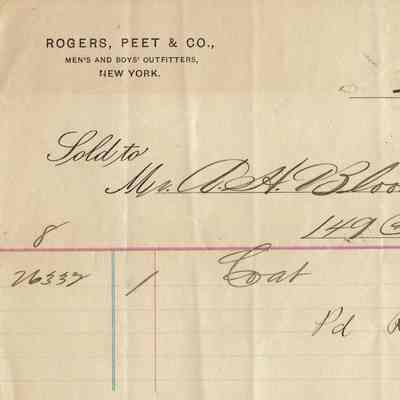 ROGERS, PEET & CO.,
MEN'S AND BOYS' OUTFITTERS,
NEW YORK.
Sold to
Mr. A. H. Bloo
149
8
26332 1 Coat
Pd